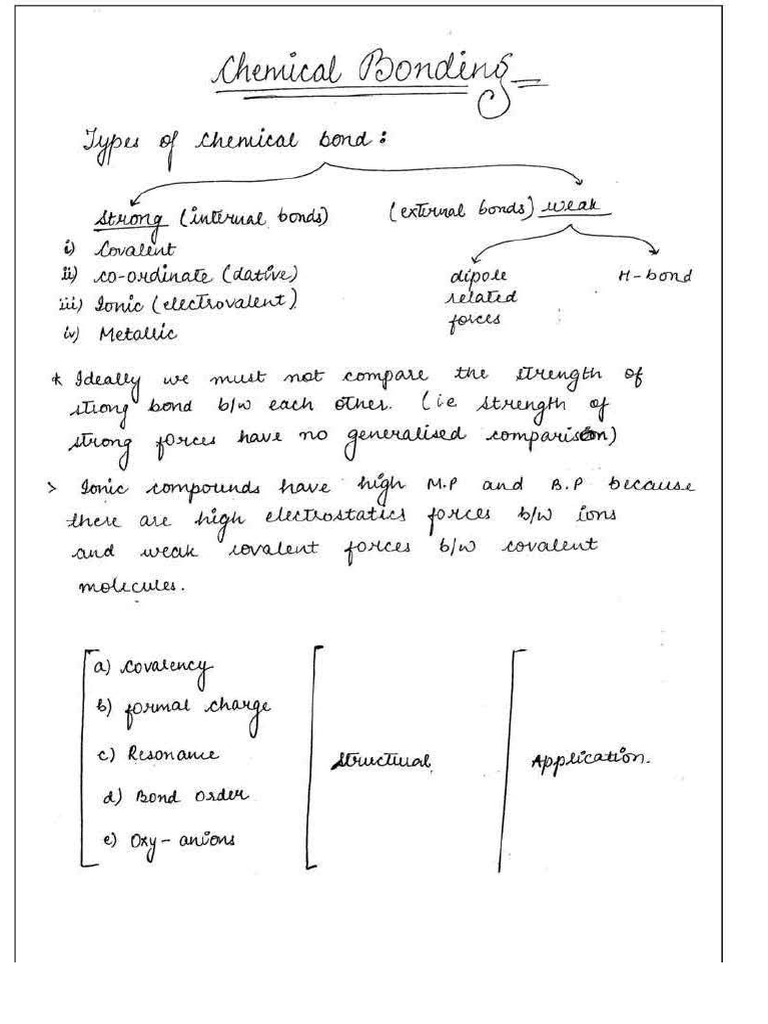 Chemical Bonding
Types of chemical bond :
Strong (internal bonds)
(external bonds) weak
i) Covalent
ii) co-ordinate (dative)
iii) Ionic (electrovalent)
iv) Metallic
dipole
related
forces
H-bond
* Ideally we must not compare the strength of
strong bond b/w each other. (ie strength of
strong forces have no generalised comparison)
> Ionic compounds have high M.P and B.P because
there are high electrostatics forces b/w ions
and weak covalent forces b/w covalent
molecules.
a) covalency
b) formal charge
c) Resonance
d) Bond order
e) Oxy-anions
Structual
Application.